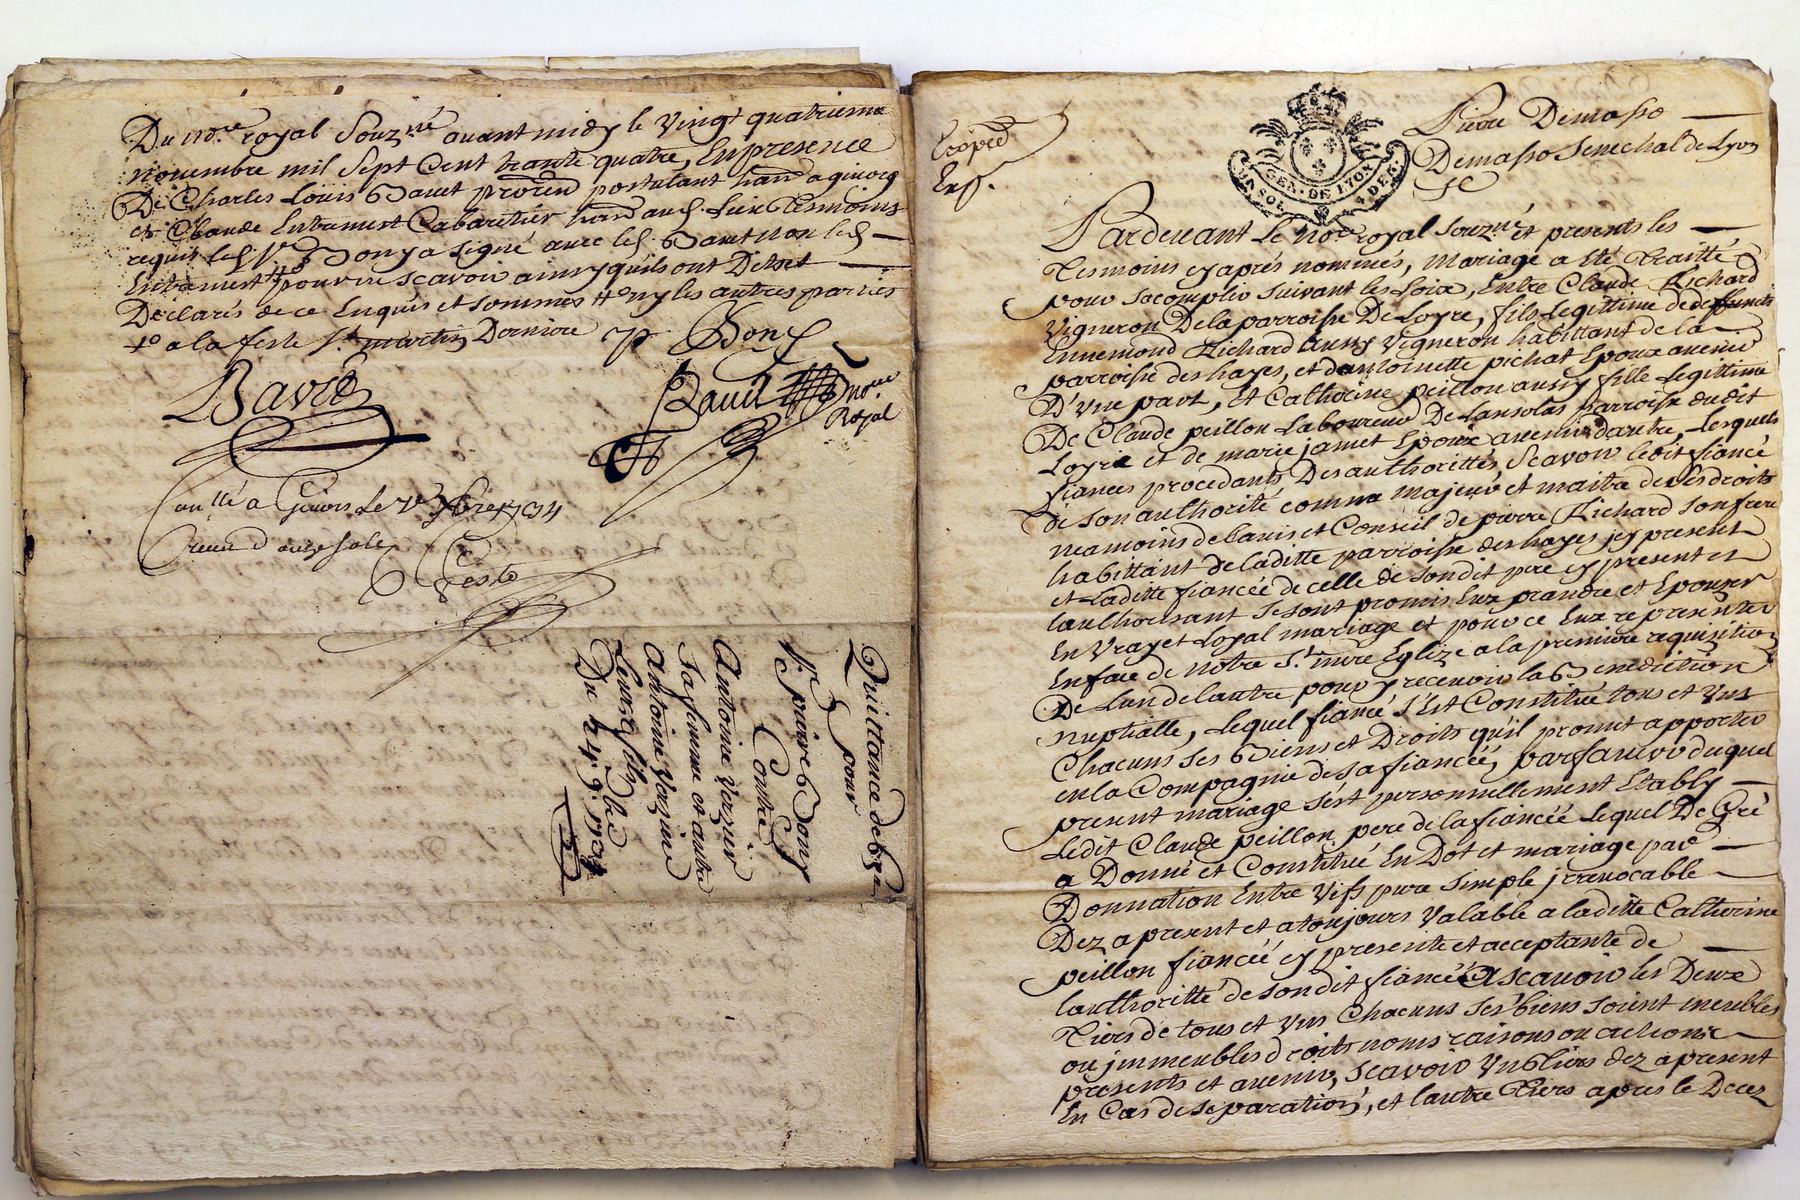 Du no.re royal Souz.né avant midy le vingt quatrieme
novembre mil sept cent trante quatre, En presence
De Charles Louis Bavet postulant
et Claude Cabaretier Tesmoins
requis led. S.r Bony a signé avec led. Bavet non led.
pour ne scavoir ainsy quils ont
Declarés de ce Enquis et sommés ny les autres parties
a la feste S.t martin Derniere
Bony
Bavet
no.re
Royal
a Givors Le 9bre 1734
Quittance de
pour
S.r Bony
Contre
Antoine
sa femme et autre
Antoine
Leur fils
Du 24 9.e 1734
Expedié
Exp.
GEN. DE LYON
Pierre Demasso
Demasso Senechal de Lyon
Pardevant Le no.re royal Souz.né et presents les
Tesmoins cy aprés nommés, mariage a Eté Traitté
pour sacomplir suivant les Loix, Entre Claude Richard
Vigneron De la parroisse De Loyre, fils Legittime de deffunct
Ennemond Richard aussy Vigneron habittant de la
parroisse des hayes, et dantoinette pichat Epoux avenir
D'Vne part, Et Catherine peillon aussy fille Legittime
De Claude peillon Laboureur De Lansolas parroisse dudit
Loyre et de marie jamet Epouze avenir dautre, Lesquels
fiancés procedants Des authorittés, Scavoir Ledit fiancé
de son authorité comme majeur et maitre de ses droits
neamoins de lavis et Conseil de pierre Richard son frere
habittant de laditte parroisse des hayes jcy present
et Laditte fiancée de celle de sondit pere cy present et
lauthorisant se sont promis Eux prandre et Epouzer
En Vray et Loyal mariage et pour ce Eux representer
En face de notre S.te mere Eglize a la premiere requisition
De Lun de lautre pour y recevoir la Benediction
nuptialle, Lequel fiancé s'Est Constitué tous et Vns
Chacuns ses Biens et Droits qu'il promet apporter
en la Compagnie de sa fiancée, par faveur duquel
present mariage s'est personnellement Etably
Ledit Claude peillon pere de la fiancée Lequel De Gré
a Donné et Constitué En Dot et mariage par
Donnation Entre Vifs pure simple jrrevocable
Dez a present et a toujours Valable a laditte Catherine
peillon fiancée cy presente et acceptante de
lauthoritté de sondit fiancé Ascavoir les Deux
Tiers de tous et Vns Chacuns ses biens soient meubles
ou jmmeubles droits noms raisons ou actions
presents et avenir, Scavoir Vn tiers dez a present
En Cas de separation, et lautre Tiers apres le Decez